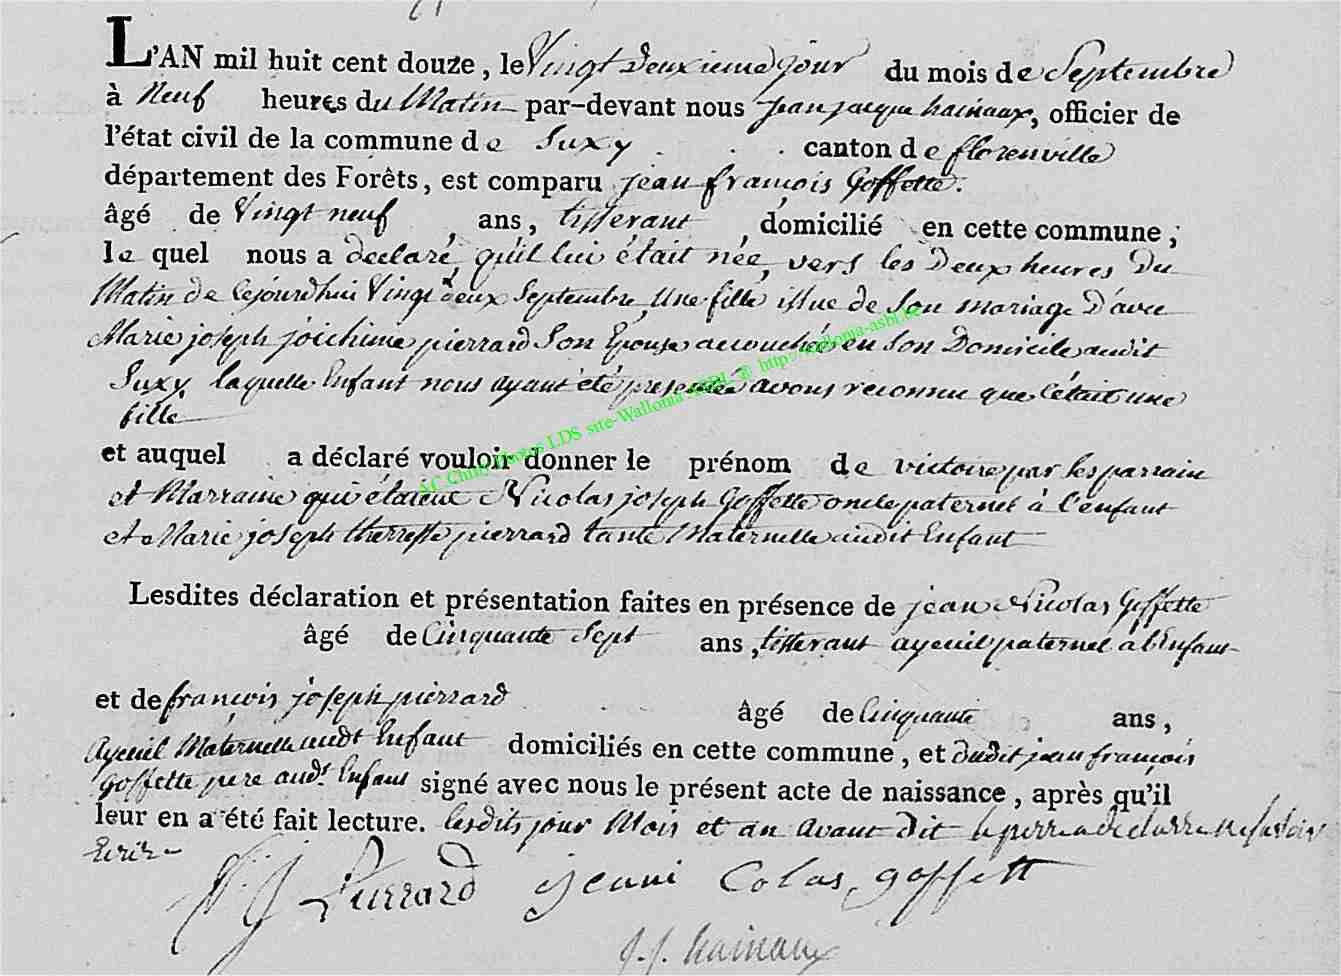 L'AN mil huit cent douze, le Vingt Deuxieme jour du mois de Septembre
à Neuf heures du Matin par-devant nous jean jacque hainaux, officier de
l'état civil de la commune de Suxy canton de florenville
département des Forêts, est comparu jean françois Goffette.
âgé de Vingt neuf ans, tisserant domicilié en cette commune;
le quel nous a declaré, qu'il lui était née, vers les Deux heures Du
Matin de Cejourdhui Vingt deux Septembre, Une fille issue de Son mariage D'avec
Marie joseph joichime pierrard Son Epouse accouchée en Son Domicile audit
Suxy laquelle Enfant nous ayant été presentée avons reconnu que C'était une
fille
et auquel a déclaré vouloir donner le prénom de victoire par les parrain
et Marraine qui étaient Nicolas joseph Goffette oncle paternel à l'enfant
et Marie joseph therresse pierrard tante Maternelle audit Enfant
Lesdites déclaration et présentation faites en présence de jean Nicolas Goffette
âgé de Cinquante Sept ans, tisserant ayeuil paternel a l'Enfant
et de françois joseph pierrard âgé de Cinquante ans,
Ayeuil Maternelle audt Enfant domiciliés en cette commune, et dudit jean françois
Goffette pere audt Enfant signé avec nous le présent acte de naissance, après qu'il
leur en a été fait lecture. lesdits jour Mois et an avant Dit le pere a declarre ne savoir
Ecrire
f j Pierrard jean Colas goffett
j. j. hainaux
AC Chiny Photos LDS site-Wallonia ASBL ® http://wallonia-asbl.be